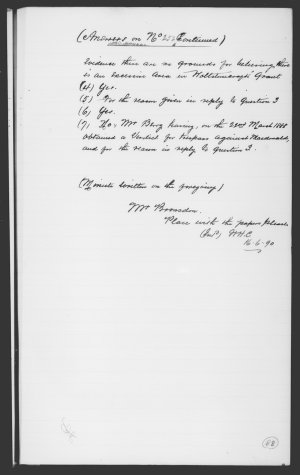 (Answers on No 252 Continued)
Evidence there are no grounds for believing there
is an excessive area in Grant
(4) Yes.
(5) For the reason given in reply to Question 3
(6) Yes.
(7) No; Mr Berg having, on the 23rd March 1888
obtained a Verdict for trespass against Macdonald,
and for the reason in reply to Question 3.
(Minute written on the foregoing)
Mr Brownsdon.
Place with the papers
(Int.) H.H.C
16.6.90